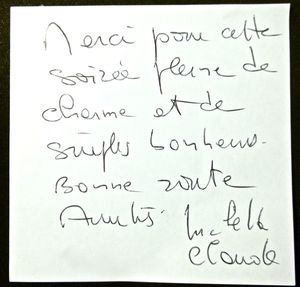 Merci pour cette
soirée pleine de
charme et de
simples bonheurs.
Bonne route
Amitiés.
Claude